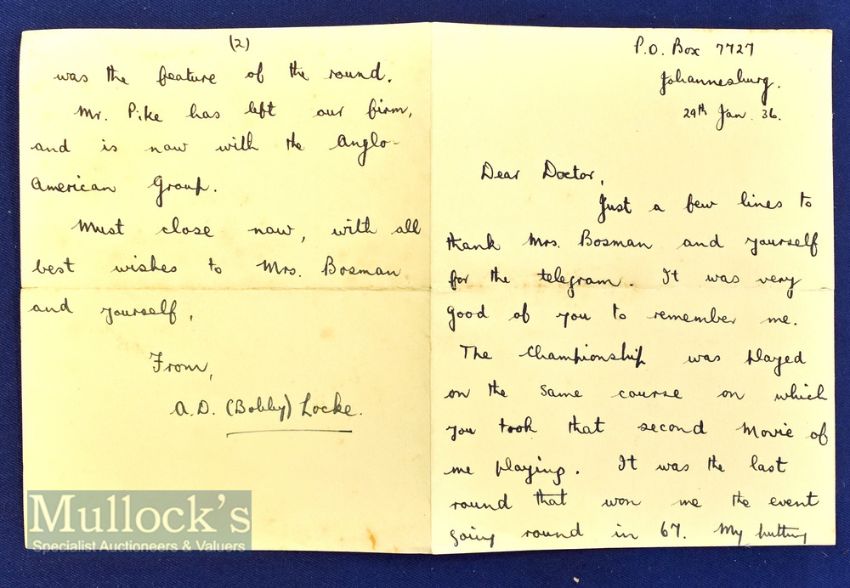 P.O. Box 7727
Johannesburg.
29th Jan. 36.
Dear Doctor,
Just a few lines to
thank Mrs. Bosman and yourself
for the telegram. It was very
good of you to remember me.
The Championship was played
on the same course on which
you took that second movie of
me playing. It was the last
round that won me the event
going round in 67. My putting
(2)
was the feature of the round.
Mr. Pike has left our firm,
and is now with the Anglo-
American Group.
Must close now, with all
best wishes to Mrs. Bosman
and yourself,
From,
A.D. (Bobby) Locke.
Mullock's
Specialist Auctioneers & Valuers